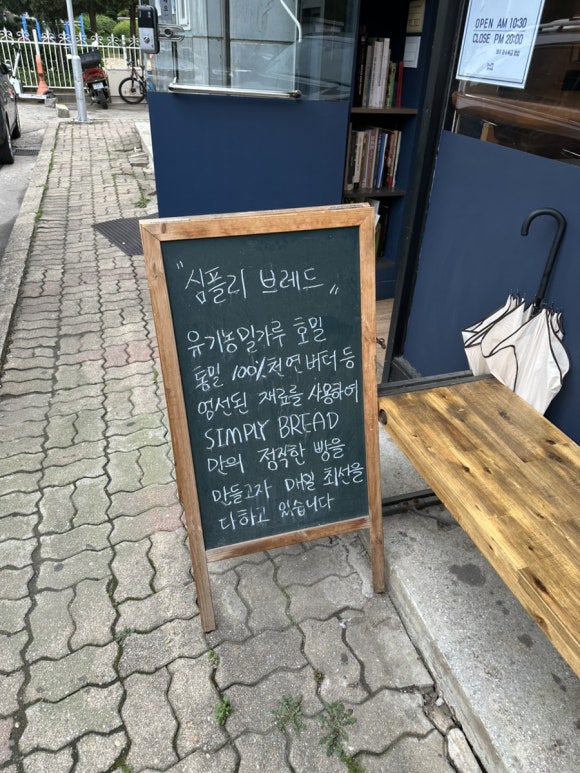 OPEN AM 10:30
CLOSE PM 20:00
"심플리 브레드"
유기농밀가루 호밀
통밀 100%천연버터등
엄선된 재료를 사용하여
SIMPLY BREAD
만의 정직한 빵을
만들고자 매일 최선을
다하고 있습니다